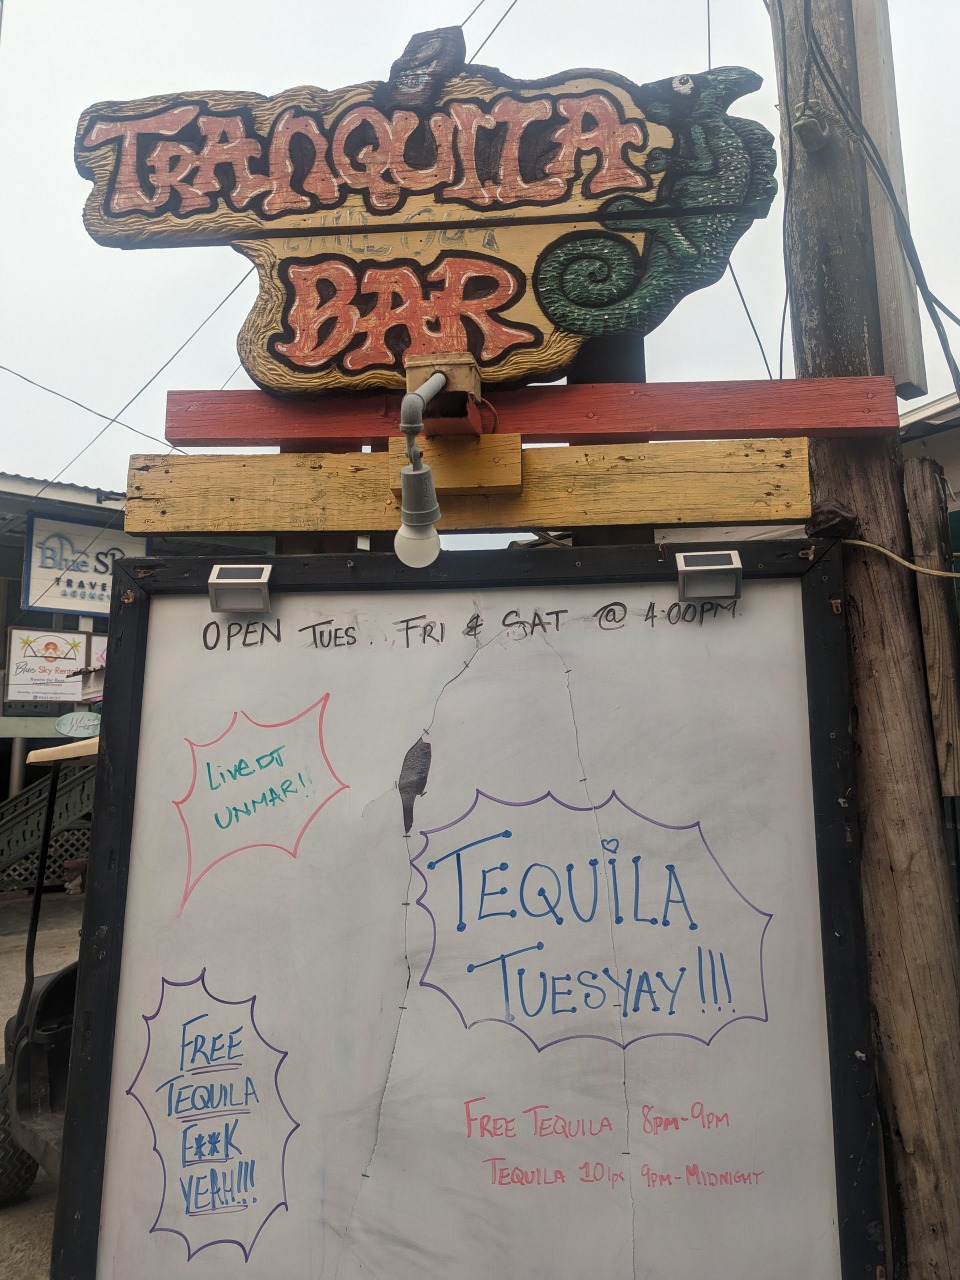 TRANQUILA
CHILL OUT
BAR
Blue Sk
TRAVEL
AGENCY
Blue Sky Rental
OPEN TUES. FRI & SAT @ 4:00PM.
LIVE DJ
UNMAR!!
TEQUILA
TUESYAY!!!
FREE
TEQUILA
F**K
YEAH!!!
FREE TEQUILA 8pm-9pm
TEQUILA 10lps 9pm-MIDNIGHT